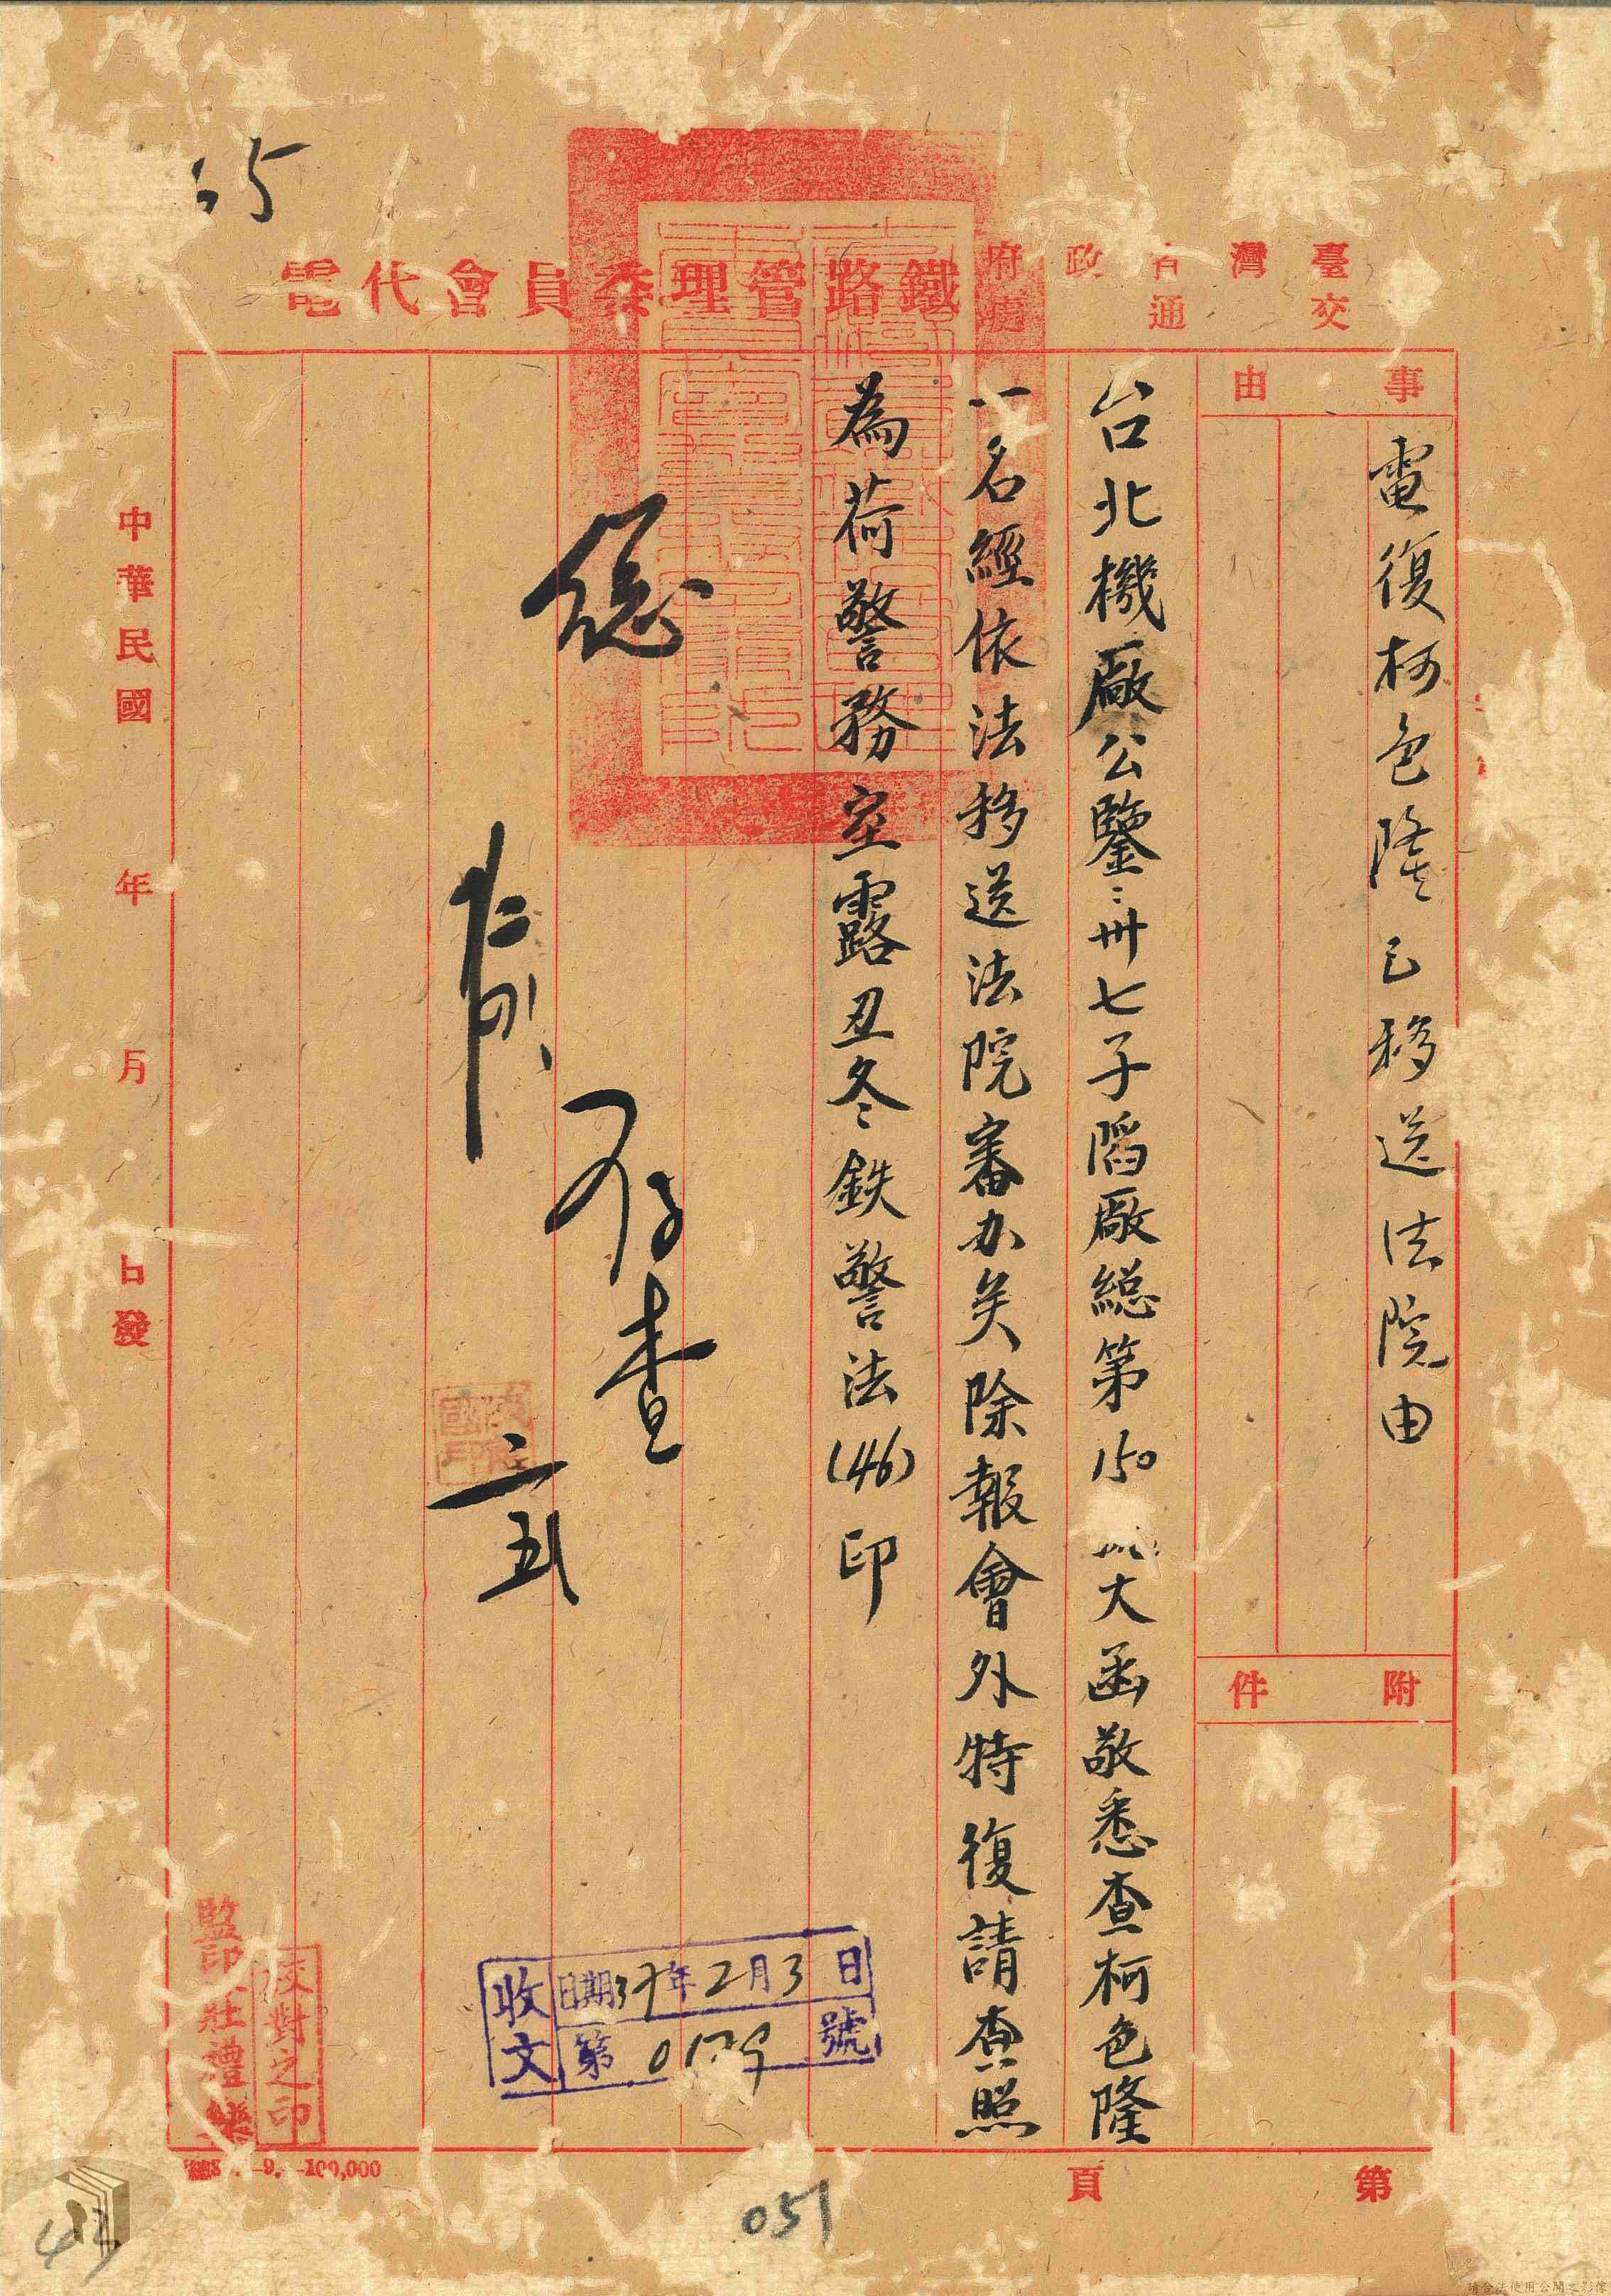 臺灣省政府
交通處
鐵路管理委員會代電
事由
電復柯色隆已移送法院由
附件
台北機廠公鑒:卅七子陷廠總第150
大函敬悉查柯色隆
一名經依法移送法院審办矣除報會外特復請查照
為荷警務室露丑冬鉄警法(46)印
總
存查
二五
收文
日期37年2月3日
第
號
中華民國 年 月 日發
校對之印
監印
第 頁
-9.-100,000
051